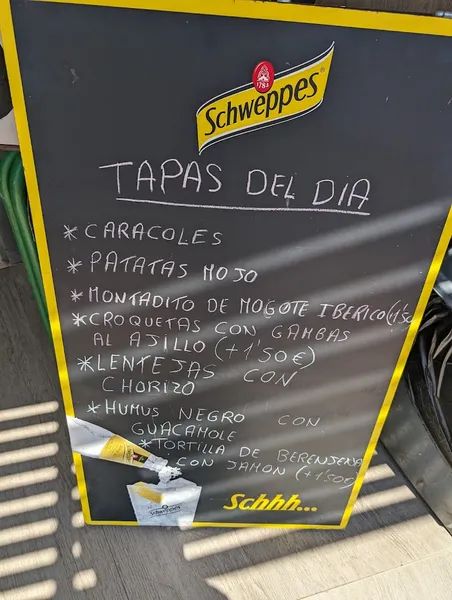 1783
Schweppes
TAPAS DEL DIA
* CARACOLES
* PATATAS MOJO
* MONTADITO DE MOGOTE IBERICO (1'50
* CROQUETAS CON GAMBAS
AL AJILLO (+1'50€)
* LENTEJAS CON
CHORIZO
* HUMUS NEGRO CON
GUACAMOLE
* TORTILLA DE BERENJENA
CON JAMON (+1'50€)
Schhh...